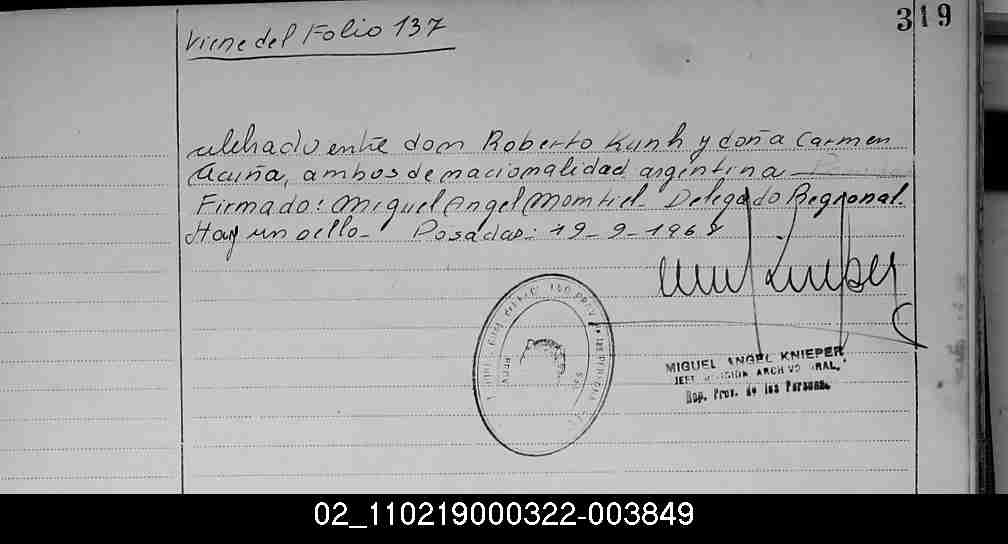 319
Viene del Folio 137
entre don Roberto Kunh y doña Carmen
Acuña, ambos de nacionalidad argentina
Firmado: Miguel Angel Montiel - Delegado Regional.
Hay un sello - Posadas: 19-9-1968
MIGUEL ANGEL KNIEPER
JEFE DIVISION ARCHIVO
Rep. Prov. de las Personas.
02_110219000322-003849